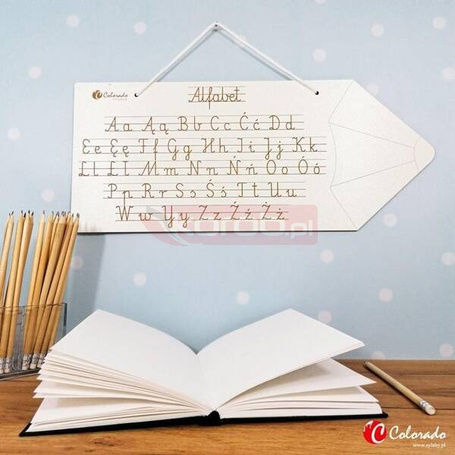 Colorado
Alfabet
Aa Ąą Bb Cc Ćć Dd
Ee Ęę Ff Gg Hh Ii Jj Kk
Ll Łł Mm Nn Ńń Oo Óó
Pp Rr Ss Śś Tt Uu
Ww Yy Zz Źź Żż
Colorado
www.sylaby.pl